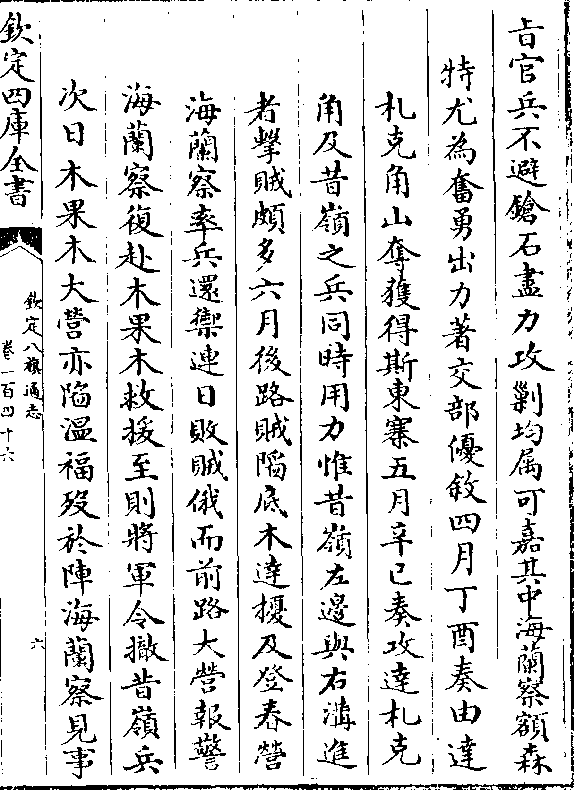 旨官兵不避鎗石盡力攻剿均属可嘉其中海蘭察額森
特尤為奮勇出力著交部優敘四月丁酉奏由達
札克角山奪獲得斯東寨五月辛巳奏攻達札克
角及昔嶺之兵同時用力惟昔嶺左邊與右溝進
者擊賊頗多六月後路賊陷底木達擾及登春營
海蘭察率兵還禦連日敗賊俄而前路大營報警
海蘭察復赴木果木救援至則將軍令撤昔嶺兵
次日木果木大營亦陷温福歿於陣海蘭察見事
欽定四庫全書
欽定八旗通志
卷一百四十六
六